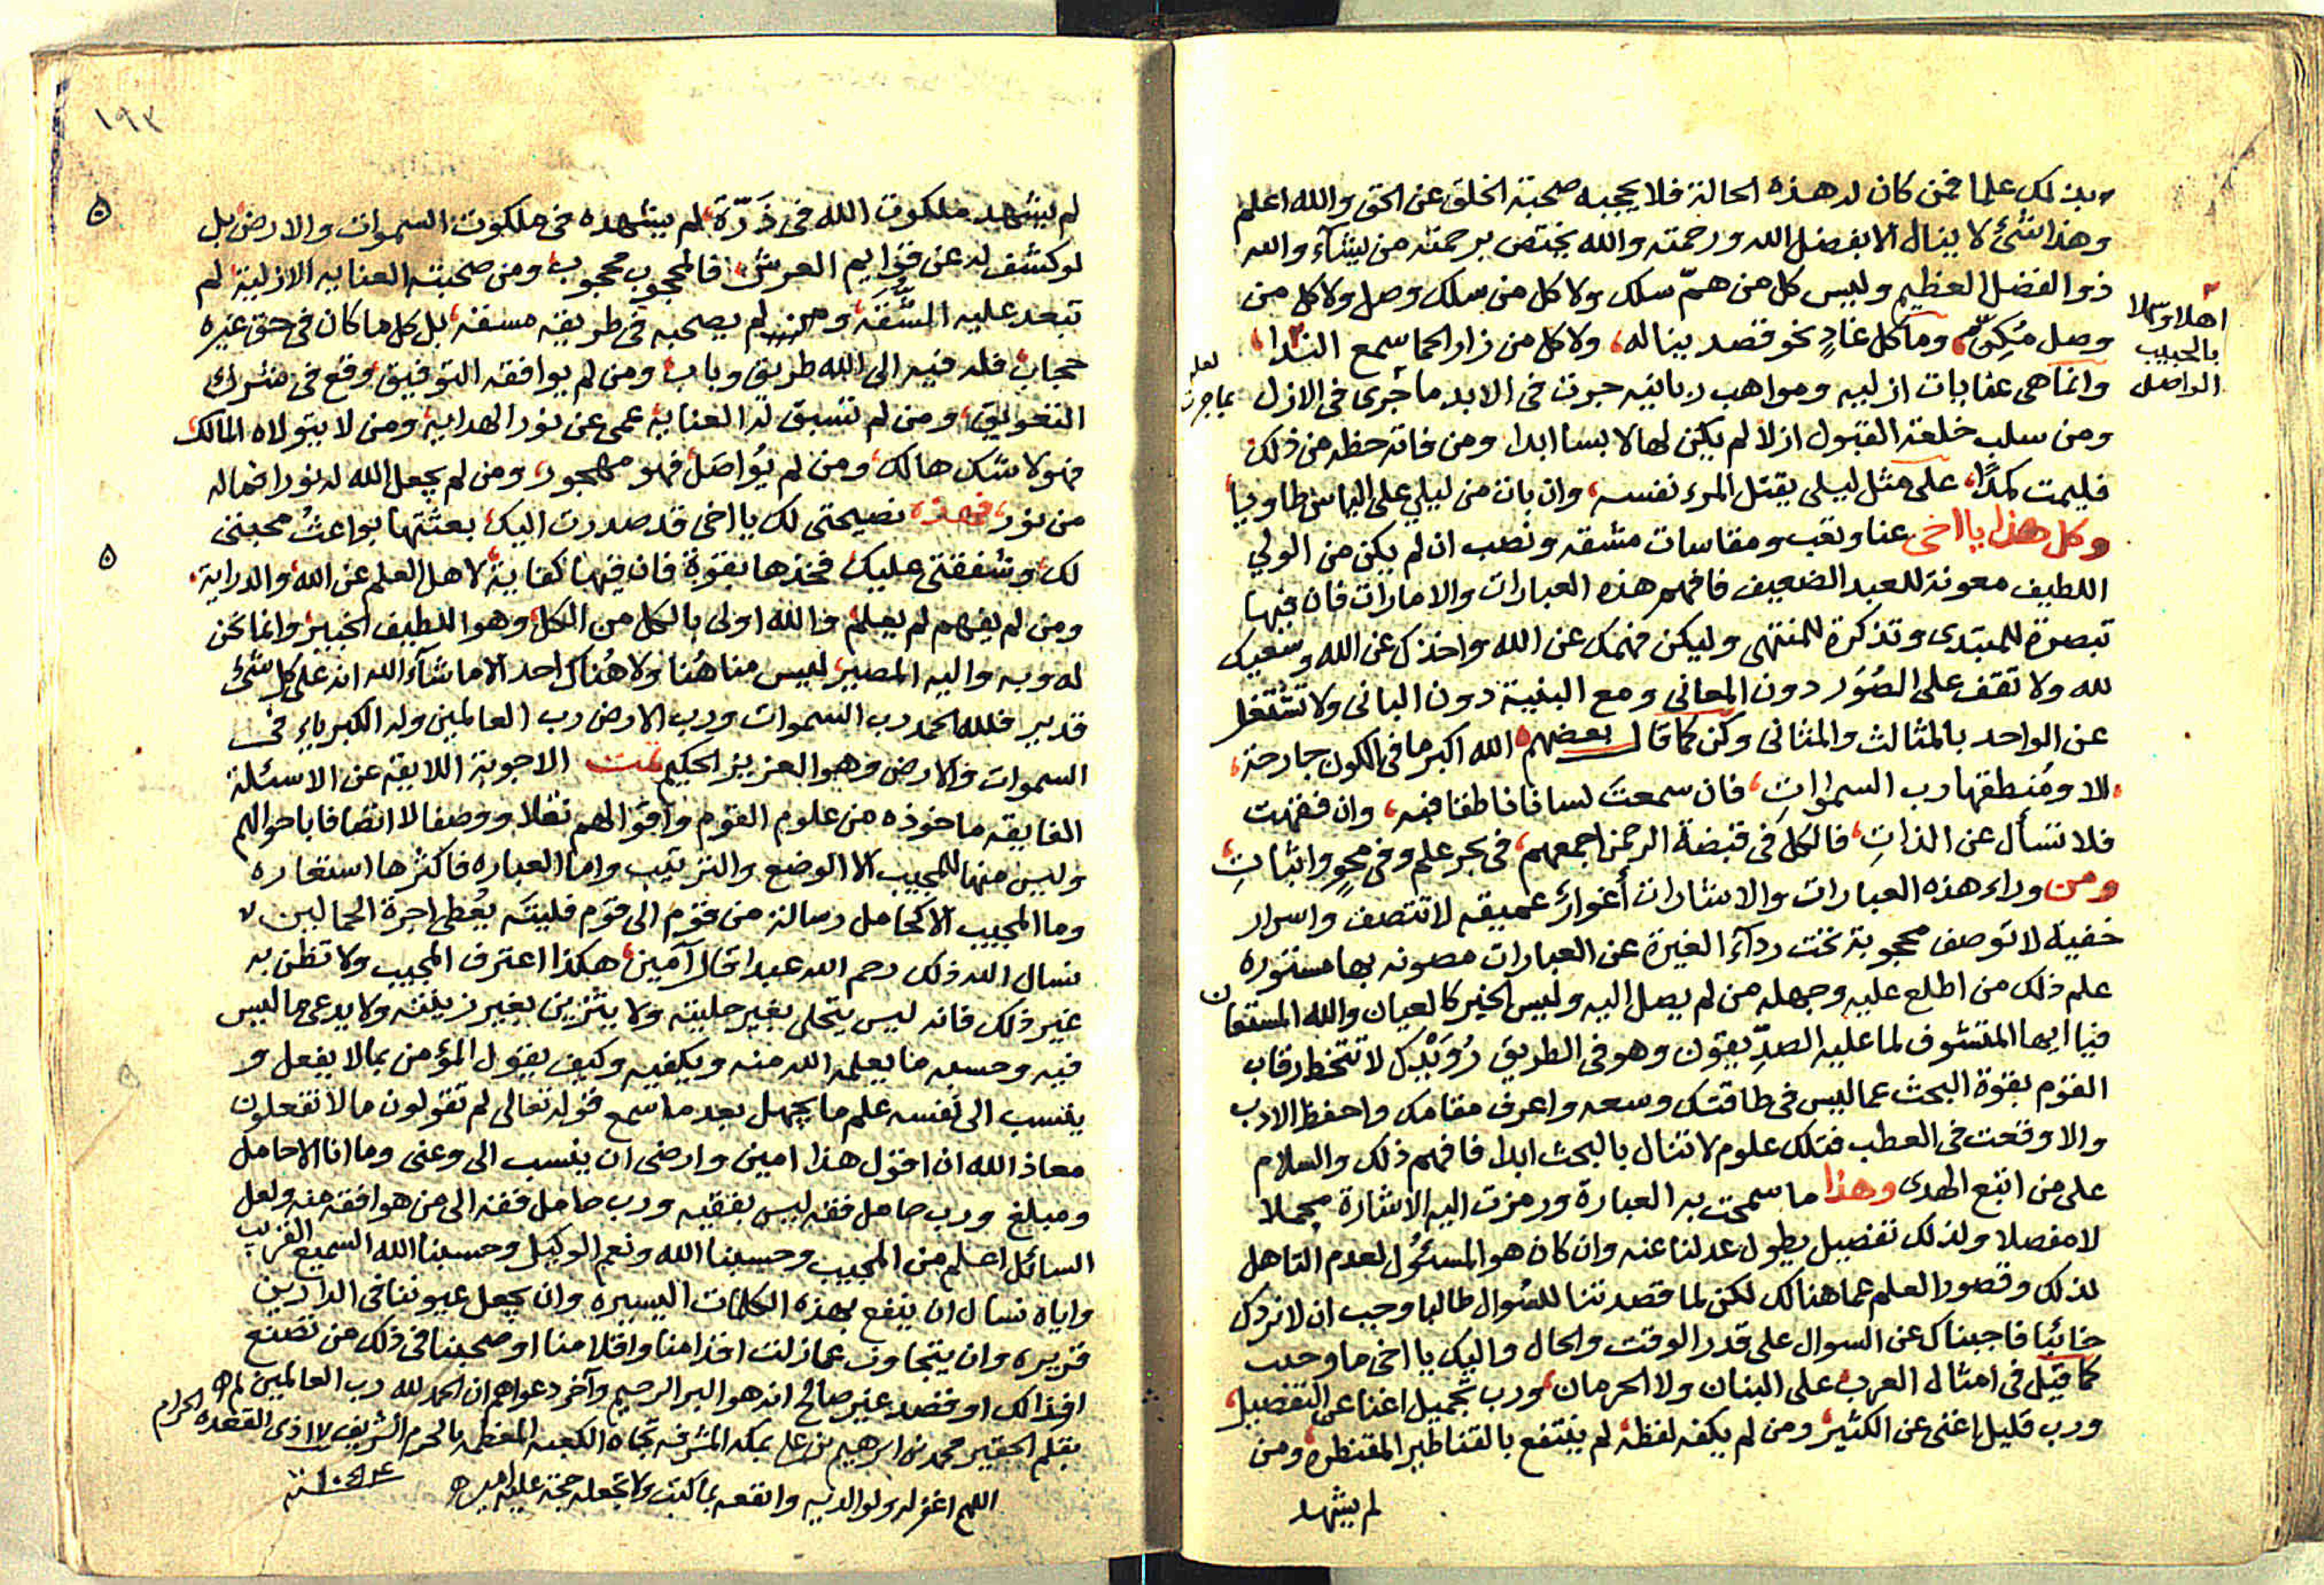 بذلك علما فمن كان له هذه الحالة فلا يحجبه صحبة الخلق عن الحق والله اعلم
وهذا شئ لا ينال الا بفضل الله ورحمته والله يختص برحمته من يشآء والله
ذوا الفضل العظيم وليس كل من همّ سلك ولا كل من سلك وصل ولا كل من
وصل مُكِّن، وما كل غادٍ نحو قصد يناله، ولا كل من زار الحما سمع الندا،
اهلا وسهلا
بالحبيب
الواصل
وانما هى عنايات ازليه ومواهب ربانيه جرت فى الابد ما جرى فى الازل
لعله
بما جرت
ومن سلب خلعة القبول ازلا لم يكن لها لابسا ابدا ومن فاته حظه من ذلك
فليمت كمدًا، على مثل ليلى يقتل المرء نفسه، وان بات من ليلي على الياس طاويا
وكل هذا يا اخى عنا وتعب ومقاسات مشقه ونصب ان لم يكن من الولي
اللطيف معونة للعبد الضعيف فافهم هذه العبارات والامارات فان فيها
تبصرة للمبتدى وتذكرة للمنتهى وليكن فهمك عن الله واخذك عن الله وسعيك
لله ولا تقف على الصُوَر دون المعانى ومع البنية دون البانى ولا تشتغل
عن الواحد بالمثالث والمثانى وكن كما قال بعضهم الله اكبر ما فى الكون جارحة،
الا ومُنطقها رب السموات، فان سمعت لسانا ناطقا فبه، وان فقهت
فلا تسأل عن الذاتِ، فالكل فى قبضة الرحمن اجمعهم، فى بحر علم وفى محوٍ واثباتِ،
ومن وراء هذه العبارات والاشارات أغوار عميقه لا تتصف واسرار
خفية لا توصف محجوبة تحت ردآء الغيرة عن العبارات مصونه بها مستوره
علم ذلك من اطلع عليه وجهله من لم يصل اليه وليس الخبر كالعيان والله المستعان
فيا ايها المتشوف لما عليه الصدّيقون وهو فى الطريق رُوَيْدك لا تتخط رقاب
القوم بقوة البحث عما ليس فى طاقتك وسعه واعرف مقامك واحفظ الادب
والا وقعت فى العطب فتلك علوم لا تنال بالبحث ابدا فافهم ذلك والسلام
على من اتبع الهدى وهذا ما سمحت به العبارة ورمزت اليه الاشارة مجملا
لا مفصلا ولذلك تفضيل يطول عدلنا عنه وان كان هو المسئول لعدم التاهل
لذلك وقصور العلم عما هنالك لكن لما قصدتنا للسُوال طالبا وجب ان لا نردك
خائبا فاجبناك عن السوال على قدر الوقت والحال واليك يا اخى ما وجب
كما قيل فى امثال العرب على البنان ولا الحرمان، ورب تجميل اغنا عن التفصيل،
ورب قليل اغنى عن الكثير، ومن لم يكفه لفظة لم ينتفع بالقناطير المقنطره، ومن
لم يشهد
١٩٢
لم يشهد ملكوت الله فى ذَرّة، لم يشهده فى ملكوت السموات والارض بل
لو كشف له عن قوايم العرش، فالمحجوب محجوب، ومن صحبته العنايه الازلية، لم
تبعد عليه الشُقَه، ومن لم يصحبه فى طريقه مسفه، بل كل ما كان فى حق غيره
حجاب، فله فيه الى الله طريق وباب، ومن لم يوافقه التوفيق، وقع فى شرك
التعويق، ومن لم تسبق له العناية، عمى عن نور الهداية، ومن لا يتولاه المالك،
فهو لا شك هالك، ومن لم يُواصَل، فهو مهجور، ومن لم يجعل الله له نورا فما له
من نور، فهذه نصيحتى لك يا اخى قد صدرت اليك، بعثتها بواعثُ محبتى
لك، وشفقتى عليك، فخذها بقوة فان فيها كفاية، لاهل العلم عن الله، والدراية،
ومن لم يفهم لم يعلم، والله اولى بالكل من الكل، وهو اللطيف الخبير، وانما نحن
له وبه واليه المصير، ليس منا هُنا ولا هُناك احد الا ما شآء الله انه على كل شئ
قدير فلله الحمد رب السموات ورب الارض رب العالمين وله الكبرياء فى
السموات والارض وهو العزيز الحكيم تمت الاجوبة اللايقه عن الاسئلة
الفايقه ماخوذه من علوم القوم واقوالهم نقلا ووصفا لا اتصافا باحوالهم
وليس منها للمجيب الا الوضع والترتيب واما العباره فاكثرها استعاره
وما المجيب الا كحامل رسالة من قوم الى قوم فليته يُعطى اجرة الحمالين
نسال الله ذلك رحم الله عبدا قال آمين، هكذا اعترف المجيب ولا تظن به
غير ذلك فانه ليس يتحلى بغير حليته ولا يتزين بغير زينته ولا يدعى ما ليس
فيه وحسبه ما يعلمه الله منه ويكفيه وكيف يقول المؤمن بما لا يفعل و
ينسب الى نفسه علم ما يجهل بعد ما سمع قوله تعالى لم تقولون ما لا تفعلون
معاذ الله ان اقول هذا امين وارضى ان ينسب الى وعنى وما انا الا حامل
ومبلغ ورب حامل فقه ليس بفقيه ورب حامل فقه الى من هو افقه منه ولعل
السائل اعلم من المجيب وحسبنا الله ونعم الوكيل وحسبنا الله السميع القريب
واياه نسال ان ينفع بهذه الكلمات اليسيره وان يجعل عيوننا فى الدارين
قريره وان يتجاوز عما زلت اقدامنا واقلامنا او صحبنا فى ذلك من تصنع
او قصد غير صالح انه هو البر الرحيم وآخر دعواهم ان الحمد لله رب العالمين
بقلم الحقير محمد بن ابرهيم بن على بمكة المشرفه تجاه الكعبه المعظمه بالحرم الشريف ذى القعدة الحرام
اللهم اغفر له ولوالديه وانفعه بما كتب ولا تجعله حجة عليه امين